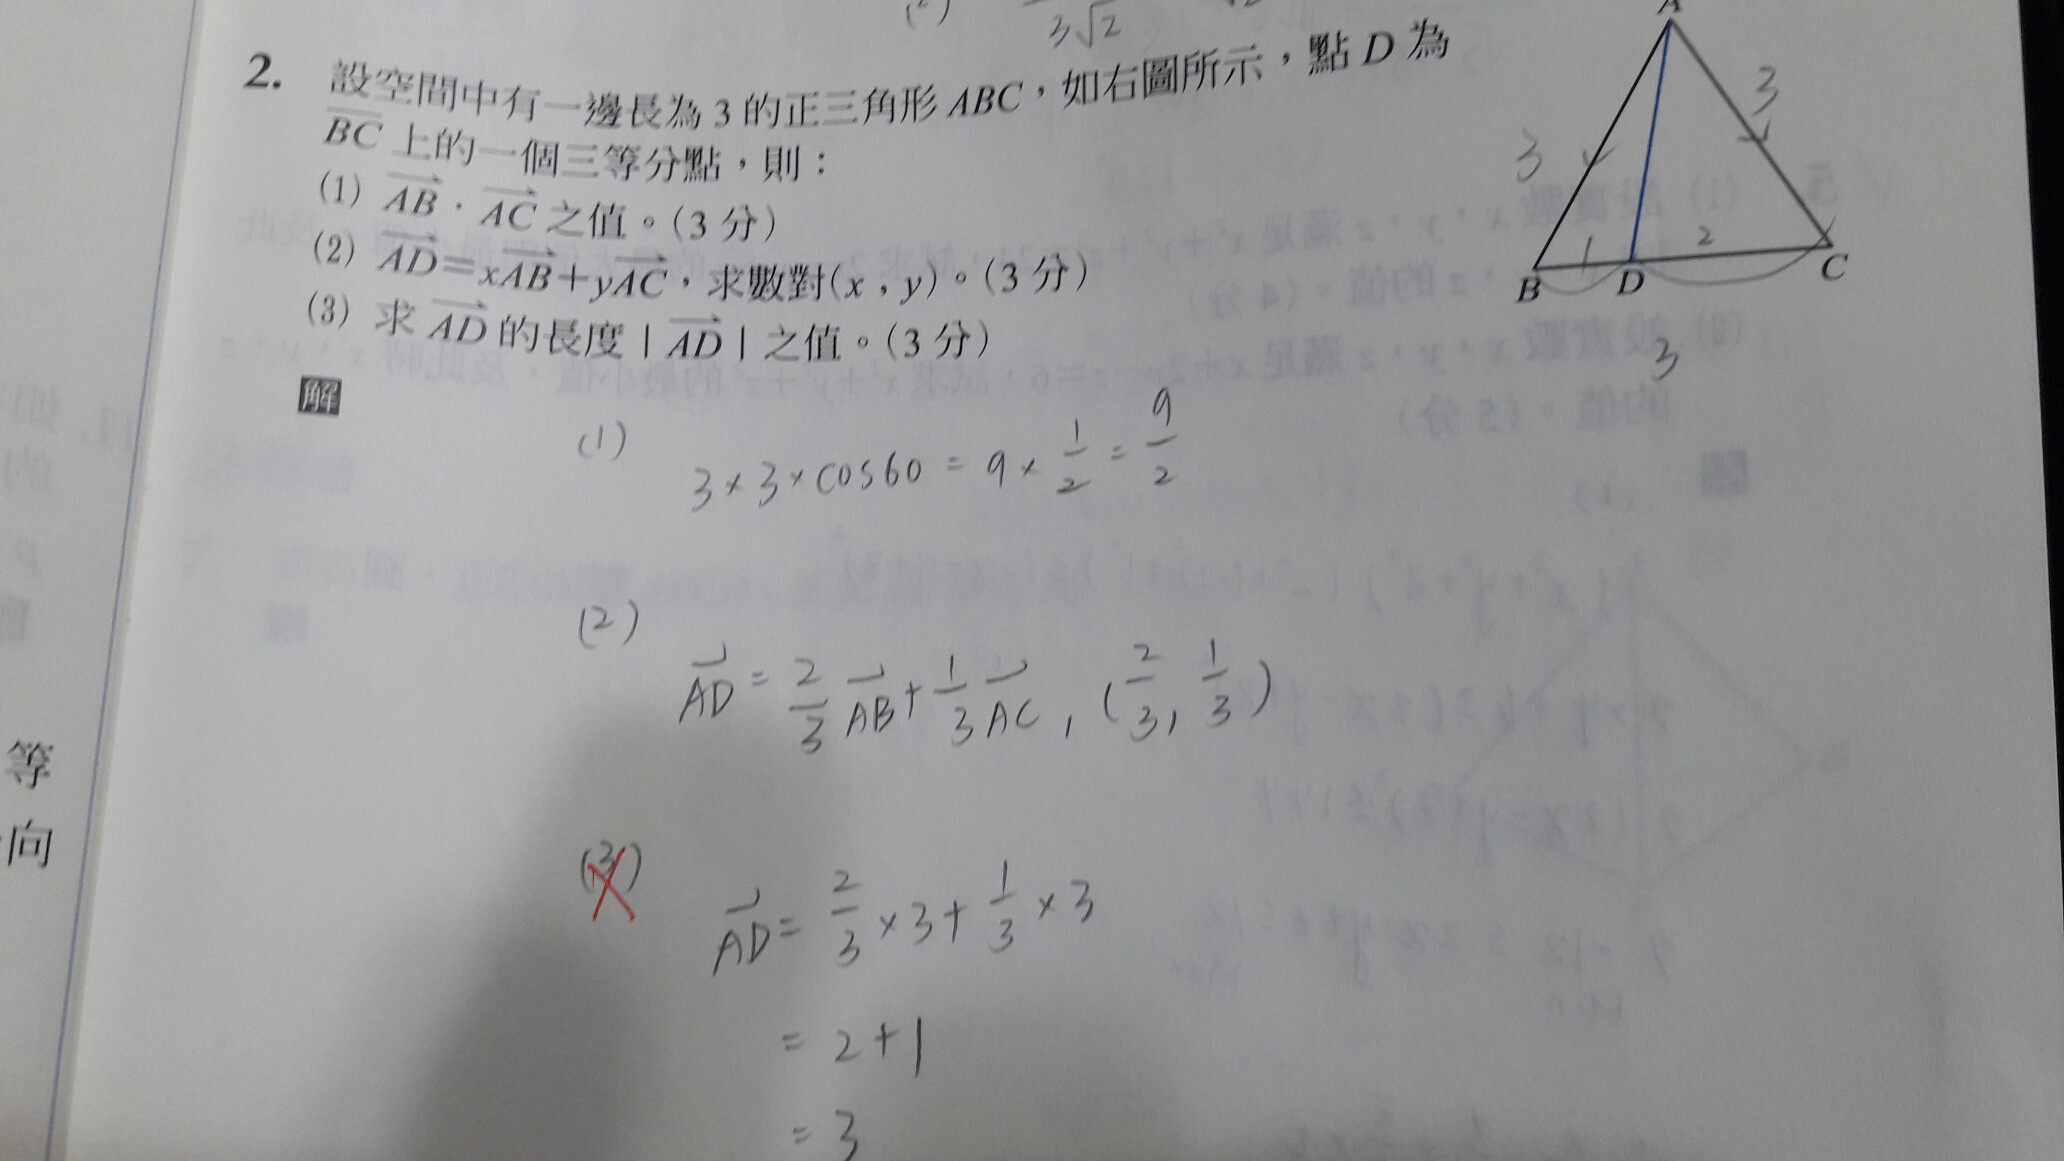 (2)
3√2
2. 設空間中有一邊長為 3 的正三角形 ABC，如右圖所示，點 D 為
BC 上的一個三等分點，則：
(1) AB · AC 之值。(3 分)
(2) AD=xAB+yAC，求數對(x , y)。(3 分)
(3) 求 AD 的長度 | AD | 之值。(3 分)
A
3
3
1
2
B
D
C
3
解
(1)
3 × 3 × cos60 = 9 × 1/2 = 9/2
(2)
AD = 2/3 AB + 1/3 AC , (2/3, 1/3)
(3)
AD = 2/3 × 3 + 1/3 × 3
= 2 + 1
= 3
等
向